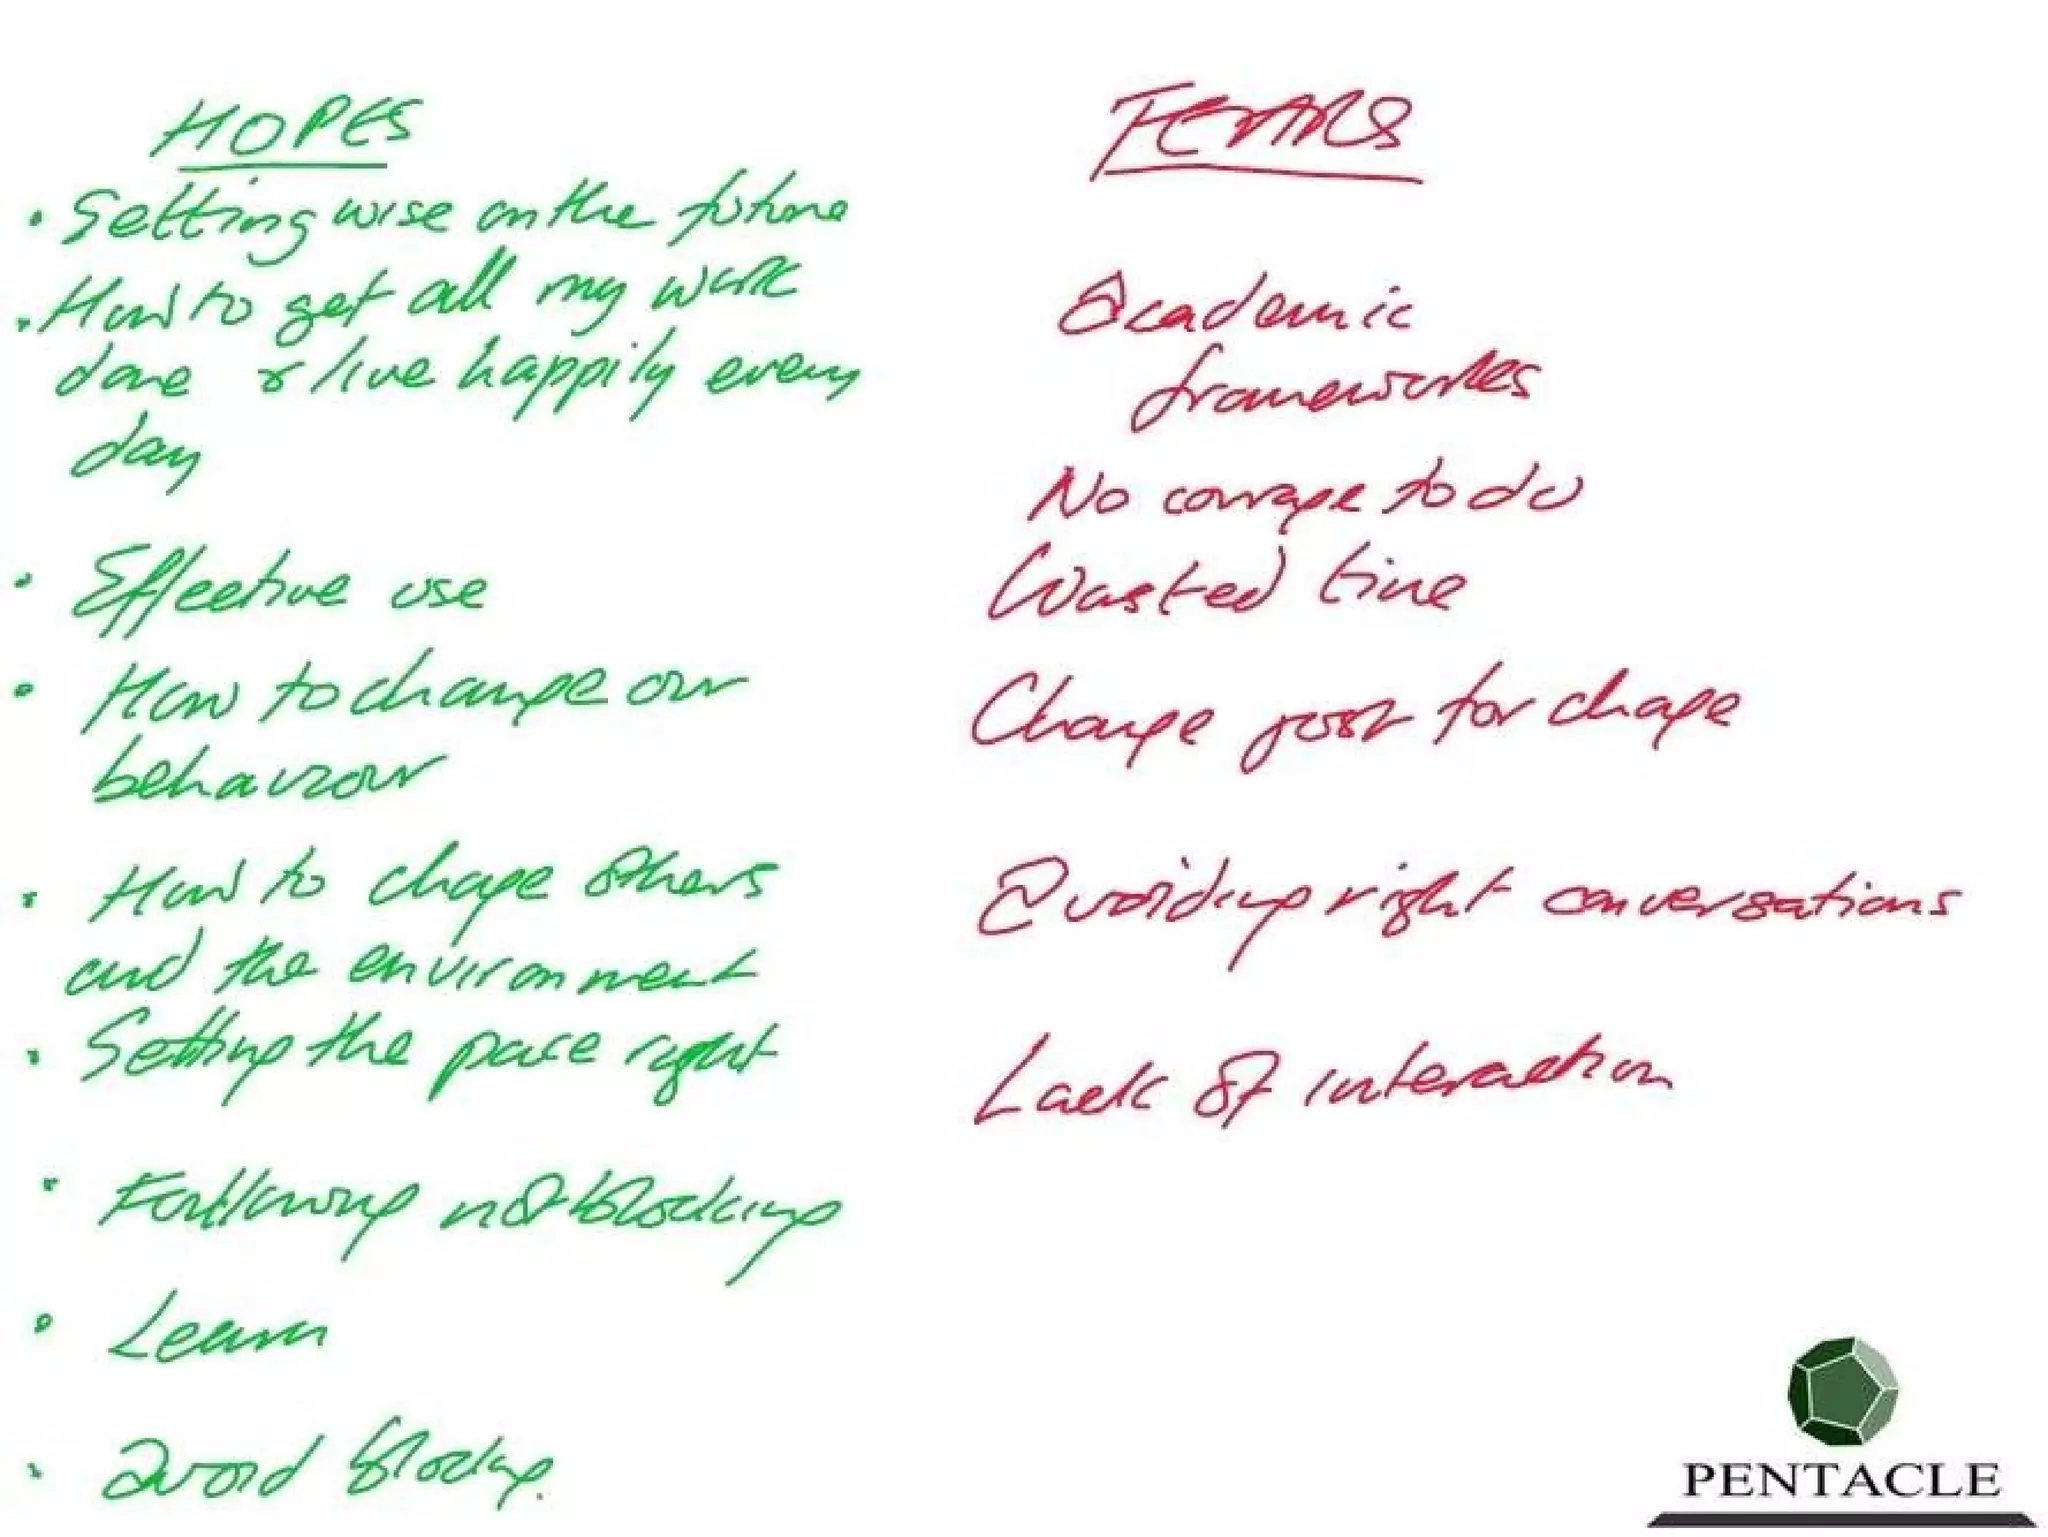 HOPES
• Setting wise on the future
• How to get all my work
done & live happily every
day
• Effective use
• How to change our
behaviour
• How to change others
and the environment
• Setting the pace right
• Following not blocking
• Learn
• avoid blocking.
FEARS
Academic
frameworks
No courage to do
Wasted time
Change just for change
Avoiding right conversations
Lack of interaction
PENTACLE